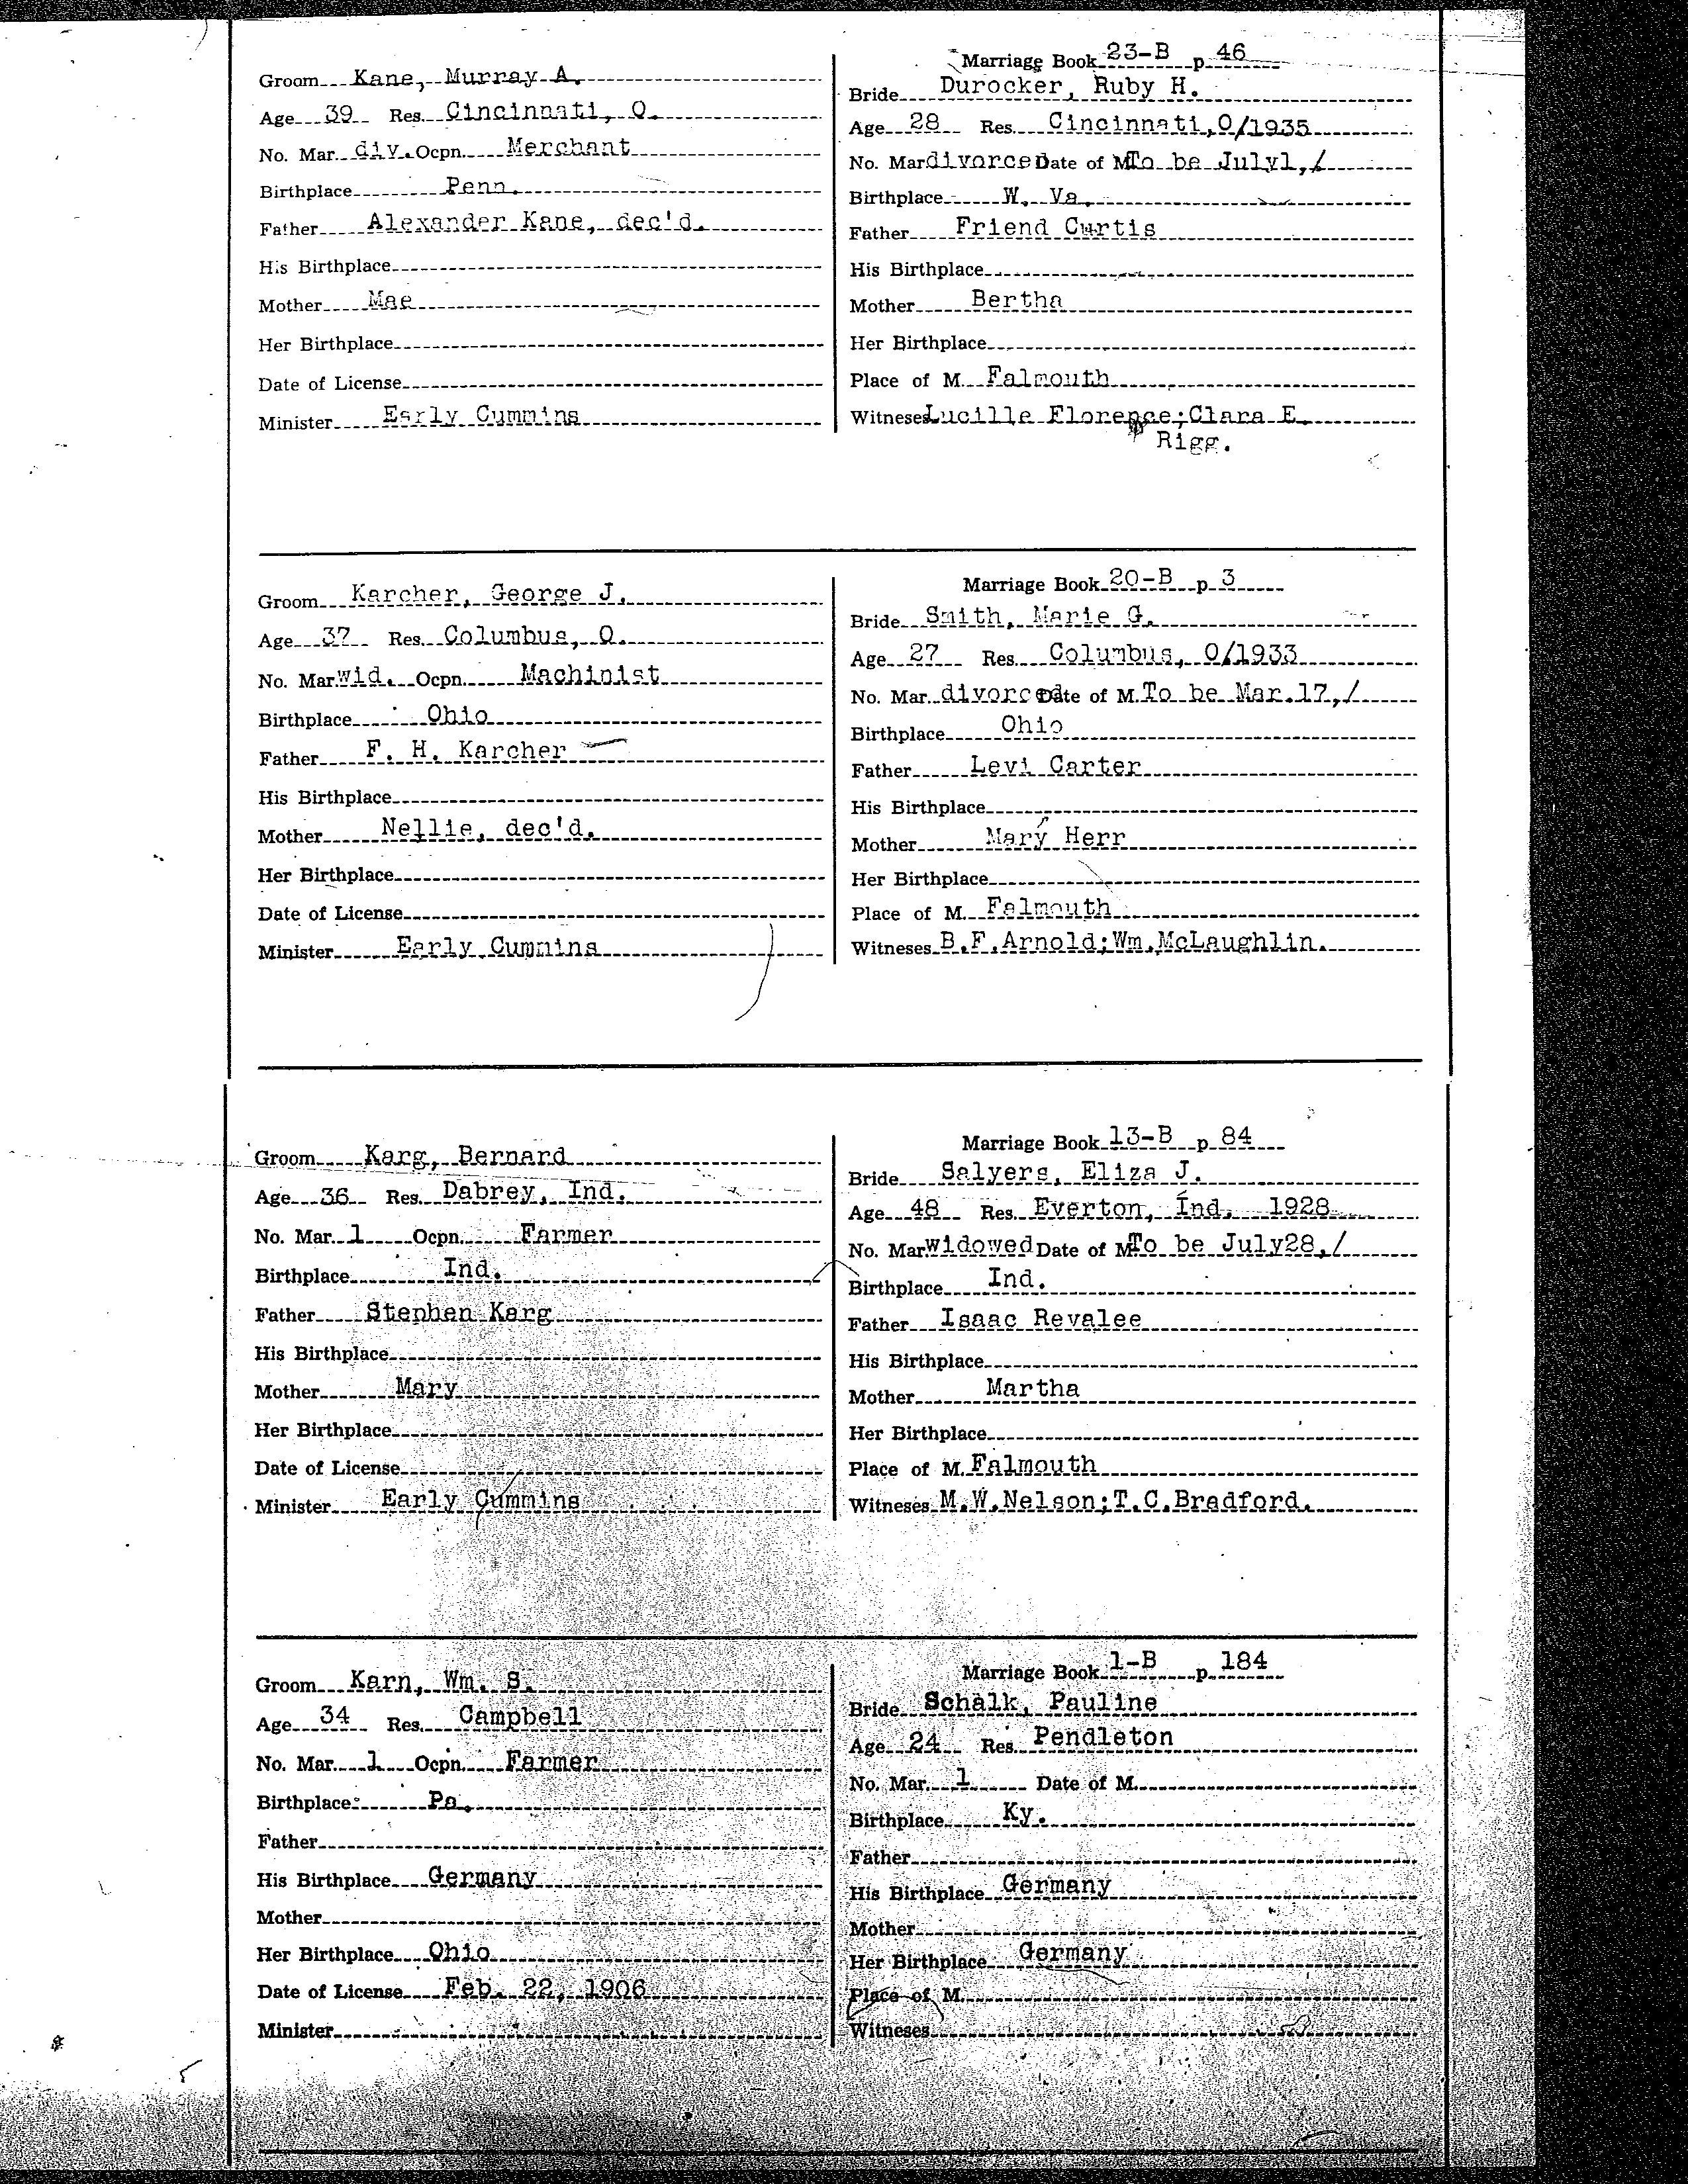 Marriage Book 23-B p 46
Groom Kane, Murray A.
Age 39 Res. Cincinnati, O.
No. Mar. div. Ocpn. Merchant
Birthplace Penn.
Father Alexander Kane, dec'd.
His Birthplace
Mother Mae
Her Birthplace
Date of License
Minister Early Cummins
Bride Durocker, Ruby H.
Age 28 Res. Cincinnati,O/1935
No. Mar divorced Date of M To be July1,/
Birthplace W. Va.
Father Friend Curtis
His Birthplace
Mother Bertha
Her Birthplace
Place of M. Falmouth
Witneses Lucille Florence;Clara E.
Rigg.
Marriage Book 20-B p 3
Groom Karcher, George J.
Age 37 Res. Columbus, O.
No. Mar. wid. Ocpn. Machinist
Birthplace Ohio
Father F. H. Karcher
His Birthplace
Mother Nellie, dec'd.
Her Birthplace
Date of License
Minister Early Cummins
Bride Smith, Marie G.
Age 27 Res. Columbus, O/1933
No. Mar. divorced Date of M. To be Mar.17,/
Birthplace Ohio
Father Levi Carter
His Birthplace
Mother Mary Herr
Her Birthplace
Place of M. Falmouth
Witneses B.F.Arnold;Wm.McLaughlin.
Marriage Book 13-B p 84
Groom Karg, Bernard
Age 36 Res. Dabrey, Ind.
No. Mar. 1 Ocpn. Farmer
Birthplace Ind.
Father Stephen Karg
His Birthplace
Mother Mary
Her Birthplace
Date of License
Minister Early Cummins
Bride Salyers, Eliza J.
Age 48 Res. Everton, Ind. 1928
No. Mar widowed Date of M To be July28,/
Birthplace Ind.
Father Isaac Revalee
His Birthplace
Mother Martha
Her Birthplace
Place of M. Falmouth
Witneses M.W.Nelson;T.C.Bradford.
Marriage Book 1-B p 184
Groom Karn, Wm. S.
Age 34 Res. Campbell
No. Mar. 1 Ocpn. Farmer
Birthplace Pa.
Father
His Birthplace Germany
Mother
Her Birthplace Ohio
Date of License Feb. 22, 1906
Minister
Bride Schalk, Pauline
Age 24 Res. Pendleton
No. Mar. 1 Date of M.
Birthplace Ky.
Father
His Birthplace Germany
Mother
Her Birthplace Germany
Place of M.
Witneses